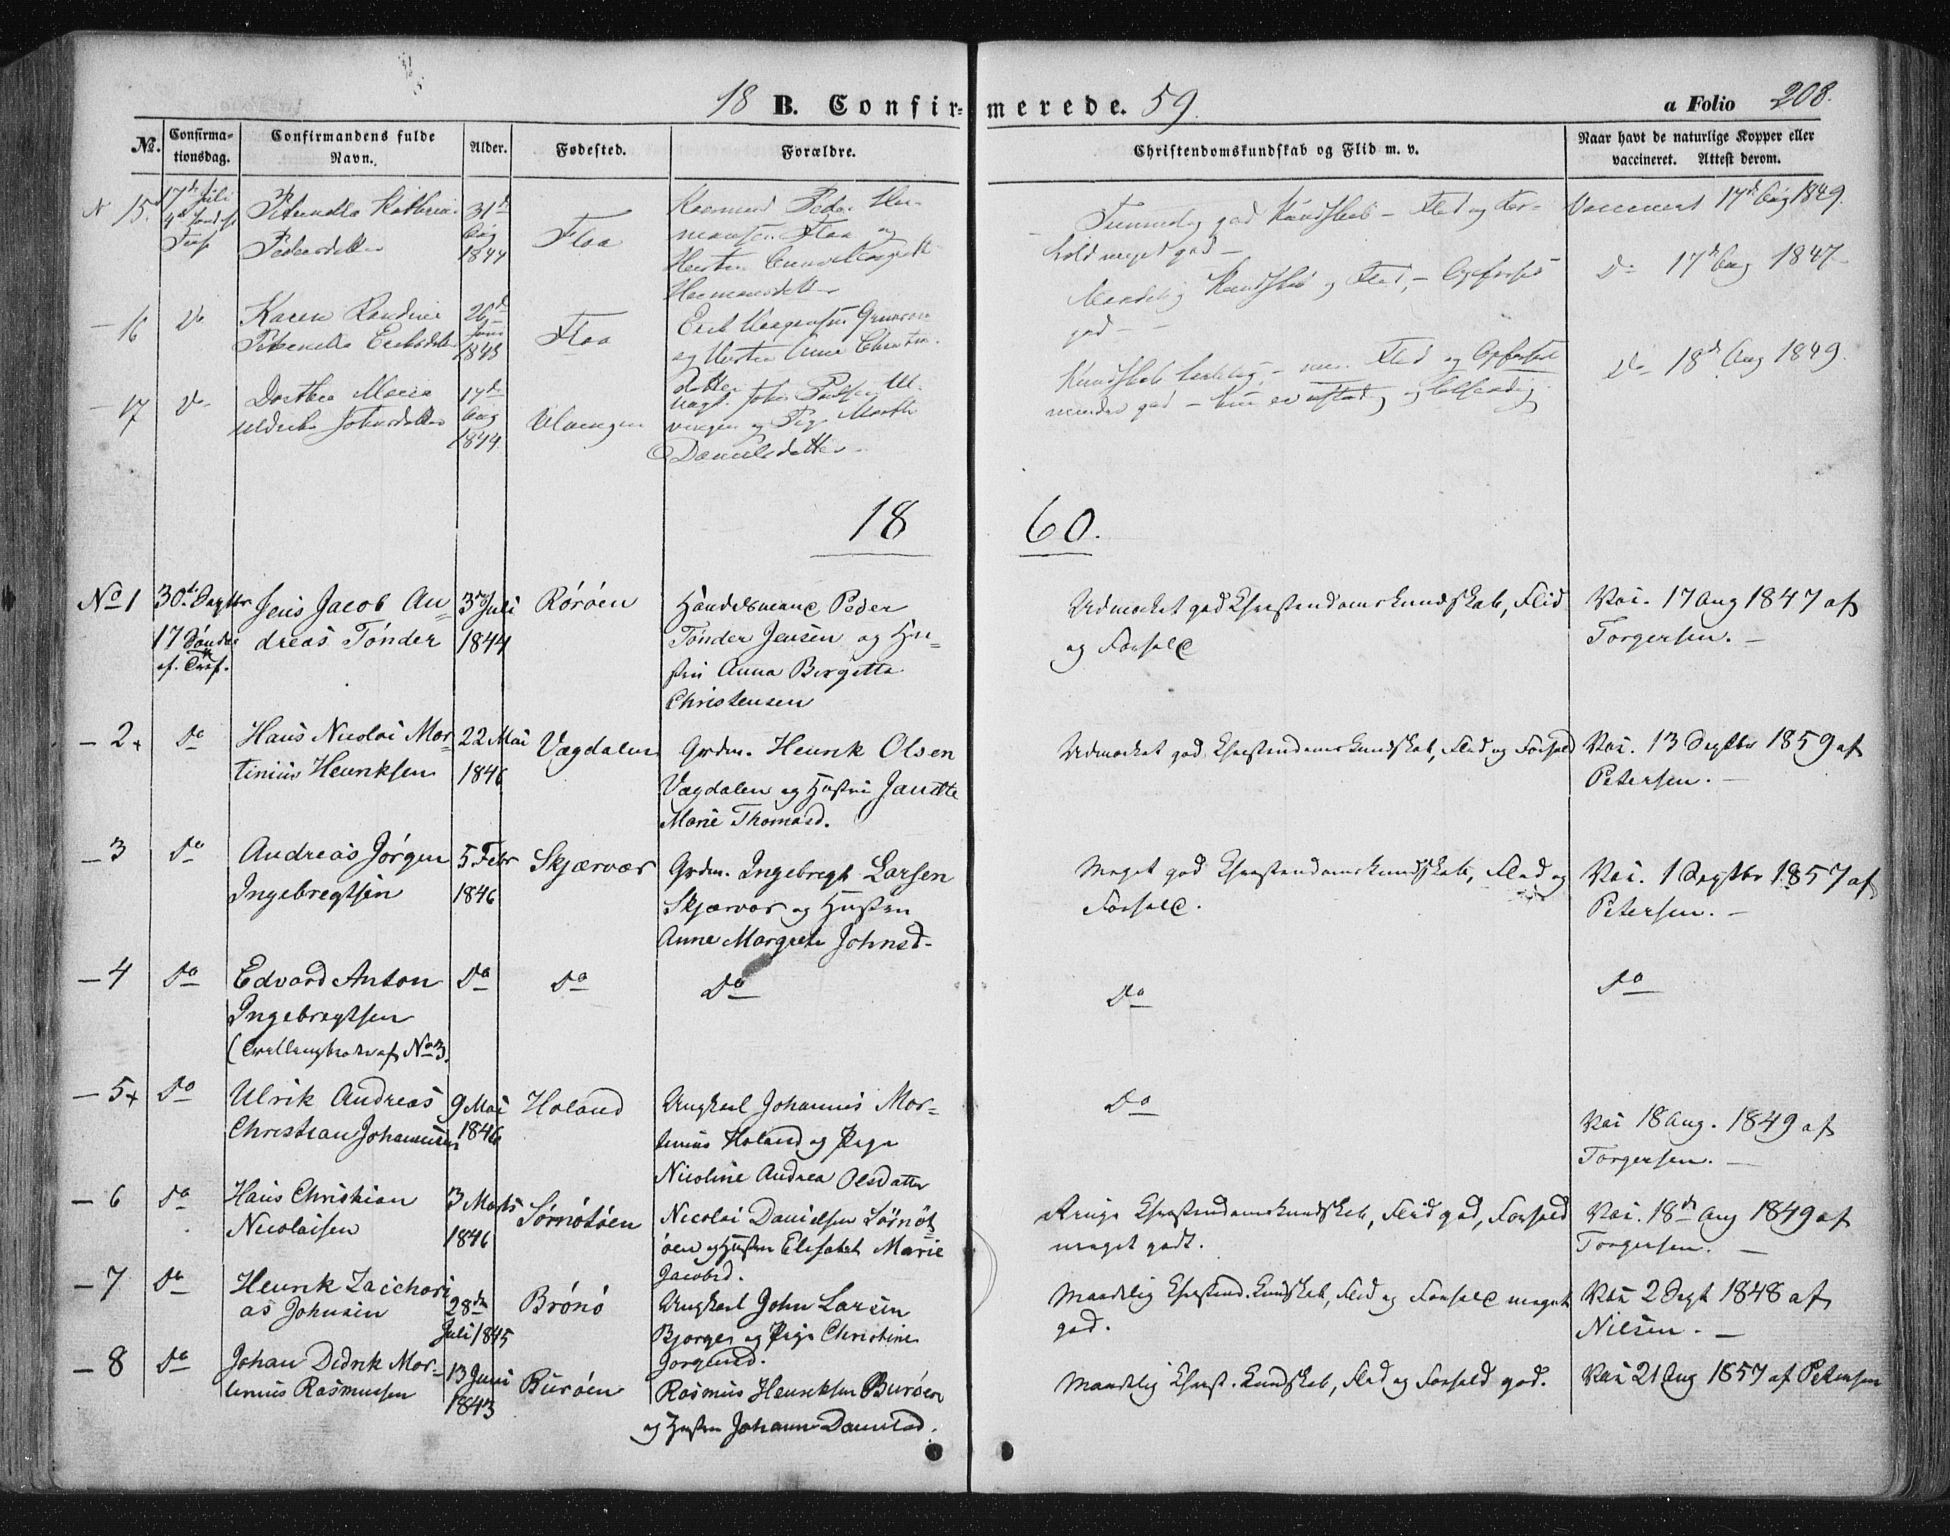 18 B. Confir-merede. 59. a Folio 208.
No. Confirma-tionsdag. Confirmandens fulde Navn. Alder. Fødested. Forældre. Christendomskundskab og Flid m. v. Naar havt de naturlige Kopper eller vaccineret. Attest derom.
N 15. 17de Juli
Pedersdatter
31d Aug 1844
Floa
Peder
Floa og
god Kundskab - Flid og
hold meget god -
Vaccineret 17de Aug 1849.
- 16 Do
Karen
26d Juni 1845
Floa
Erik
og Hustru Anna
Kundskab og Flid, - Opførsel
god -
Do 17de Aug 1847
- 17 Do
Dorthea Maria
17de Aug 1844
og Pige
Danielsdatter
Kundskab - men Flid og Opførsel
Do 18de Aug 1849.
18 60.
No 1 30te Septbr
17 Sønd. ef. Tref.
Jens Jacob An=
dreas Tønder
3die Juli
1844
Rørøen
Handelsmand Peder
Tønder Jensen og Hu=
stru Anna Bergitta
Christensen
Udmærket god Christendomskundskab, Flid
og Forhold
Vac. 17 Aug 1847 af
Torgersen. -
- 2+ Do
Hans Nicolai Mor=
tinius Henriksen
22 Mai
1846
Vægdalen
Grdm. Henrik Olsen
Vægdalen og Hustru
Marie Thomasd.
Udmærket god Christendomskundskab, Flid og Forhold
Vac. 13 Septbr 1859 af
Petersen. -
- 3 Do
Andreas Jørgen
Ingebregtsen
5 Febr
1846
Skjærvær
Grdm. Ingebregt Larsen
Skjærvær og Hustru
Anne Margrete Johnsd.
Meget god Christendomskundskab, Flid og
Forhold.
Vac. 1 Septbr 1857 af
Petersen. -
- 4 Do
Edvard Anton
Ingebregtsen
(Tvillingbroder af No 3.
Do
Do
Do
Do
Do
- 5+ Do
Ulrik Andreas
Christian Johannesen
9 Mai
1846
Holand
Ungkarl Johannes Mor=
tinius Holand og Pige
Nicoline Andrea Olsdatter
Do
Vac 18 Aug. 1849 af
Torgersen. -
- 6 Do
Hans Christian
Nicolaisen
3 Marts
1846
Sørnøtøen
Nicolai Danielsen Sørnøt=
øen og Hustru Elisabet Marie
Jacobsd.
Ringe Christendomskundskab, Flid god, Forhold
meget godt.
Vac. 18de Aug 1849 af
Torgersen. -
- 7 Do
Henrik Zacchari
as Johnsen
28de
Juli 1845
Brønø
Ungkarl John Larsen
Bjorges og Pige Christine
Maadelig Christend. kundskab, Flid og Forhold meget
god.
Vac 2 Sept 1848 af
Nilsen. -
- 8 Do
Johan Didrik Mor=
tinius Rasmussen
13 Juni
1843
Burøen
Rasmus Henriksen Burøen
og Hustru Johanna Danielsd.
Maadelig Christ. kundskab, Flid og Forhold god.
Vac 21 Aug 1857 af Petersen